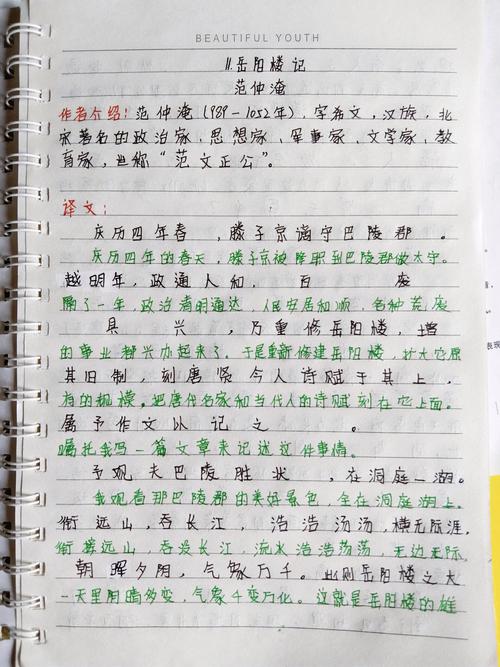 BEAUTIFUL YOUTH
11.岳阳楼记
范仲淹
作者介绍:范仲淹(989-1052年),字希文,汉族,北
宋著名的政治家、思想家、军事家、文学家、教
育家,世称“范文正公”。
译文:
庆历四年春,滕子京谪守巴陵郡。
庆历四年的春天,滕子京被降职到巴陵郡做太守。
越明年,政通人和,百废
隔了一年,政治清明通达,人民安居和顺,各种荒废
具兴,乃重修岳阳楼,增
的事业都兴办起来了。于是重新修建岳阳楼,扩大它原
其旧制,刻唐贤今人诗赋于其上,
有的规模,把唐代名家和当代人的诗赋刻在它上面。
属予作文以记之。
嘱托我写一篇文章来记述这件事情。
予观夫巴陵胜状,在洞庭一湖。
我观看那巴陵郡的美好景色,全在洞庭湖上。
衔远山,吞长江,浩浩汤汤,横无际涯,
衔着远山,吞没长江,流水浩浩荡荡,无边无际,
朝晖夕阴,气象万千。此则岳阳楼之大
一天里阴晴多变,气象千变万化。这就是岳阳楼的雄